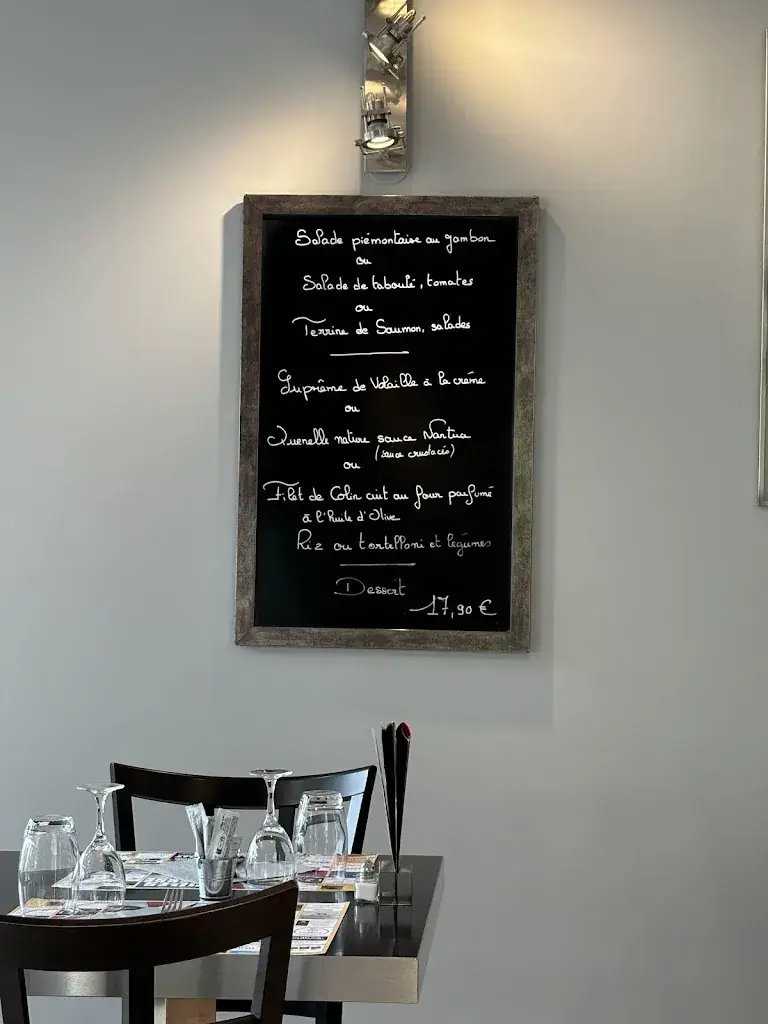 Salade piémontaise au jambon
ou
Salade de taboulé, tomates
ou
Terrine de Saumon, salades
Suprême de Volaille à la crème
ou
Quenelle nature sauce Nantua
(sauce crustacés)
ou
Filet de Colin cuit au four parfumé
à l'huile d'Olive
Riz ou tortelloni et légumes
Dessert
17,90 €